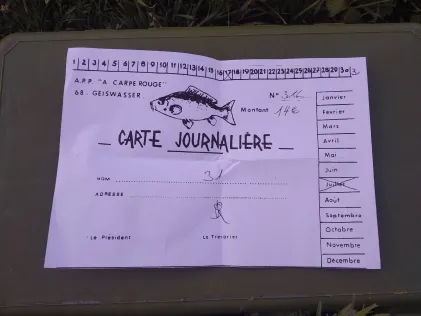 1 2 3 4 5 6 7 8 9 10 11 12 13 14 15 16 17 18 19 20 21 22 23 24 25 26 27 28 29 30 3
A.P.P. "A CARPE ROUGE"
68 - GEISWASSER
N°
Montant 14€
CARTE JOURNALIÈRE
NOM
ADRESSE
Le Président
Le Trésorier
Janvier
Février
Mars
Avril
Mai
Juin
Juillet
Août
Septembre
Octobre
Novembre
Décembre